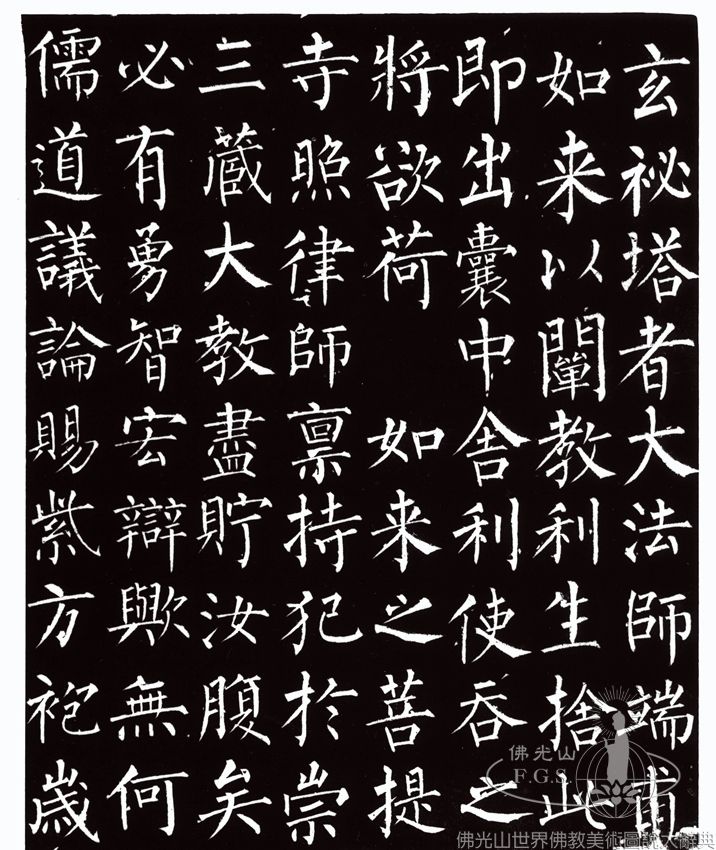 玄祕塔者大法師端甫
如来以闡教利生捨此
即出囊中舍利使吞之
將欲荷 如来之菩提
寺照律師禀持犯於崇
三蔵大教盡貯汝腹矣
必有勇智宏辯歟無何
儒道議論賜紫方袍歳
佛光山
F.G.S.
佛光山世界佛教美術圖說大辭典